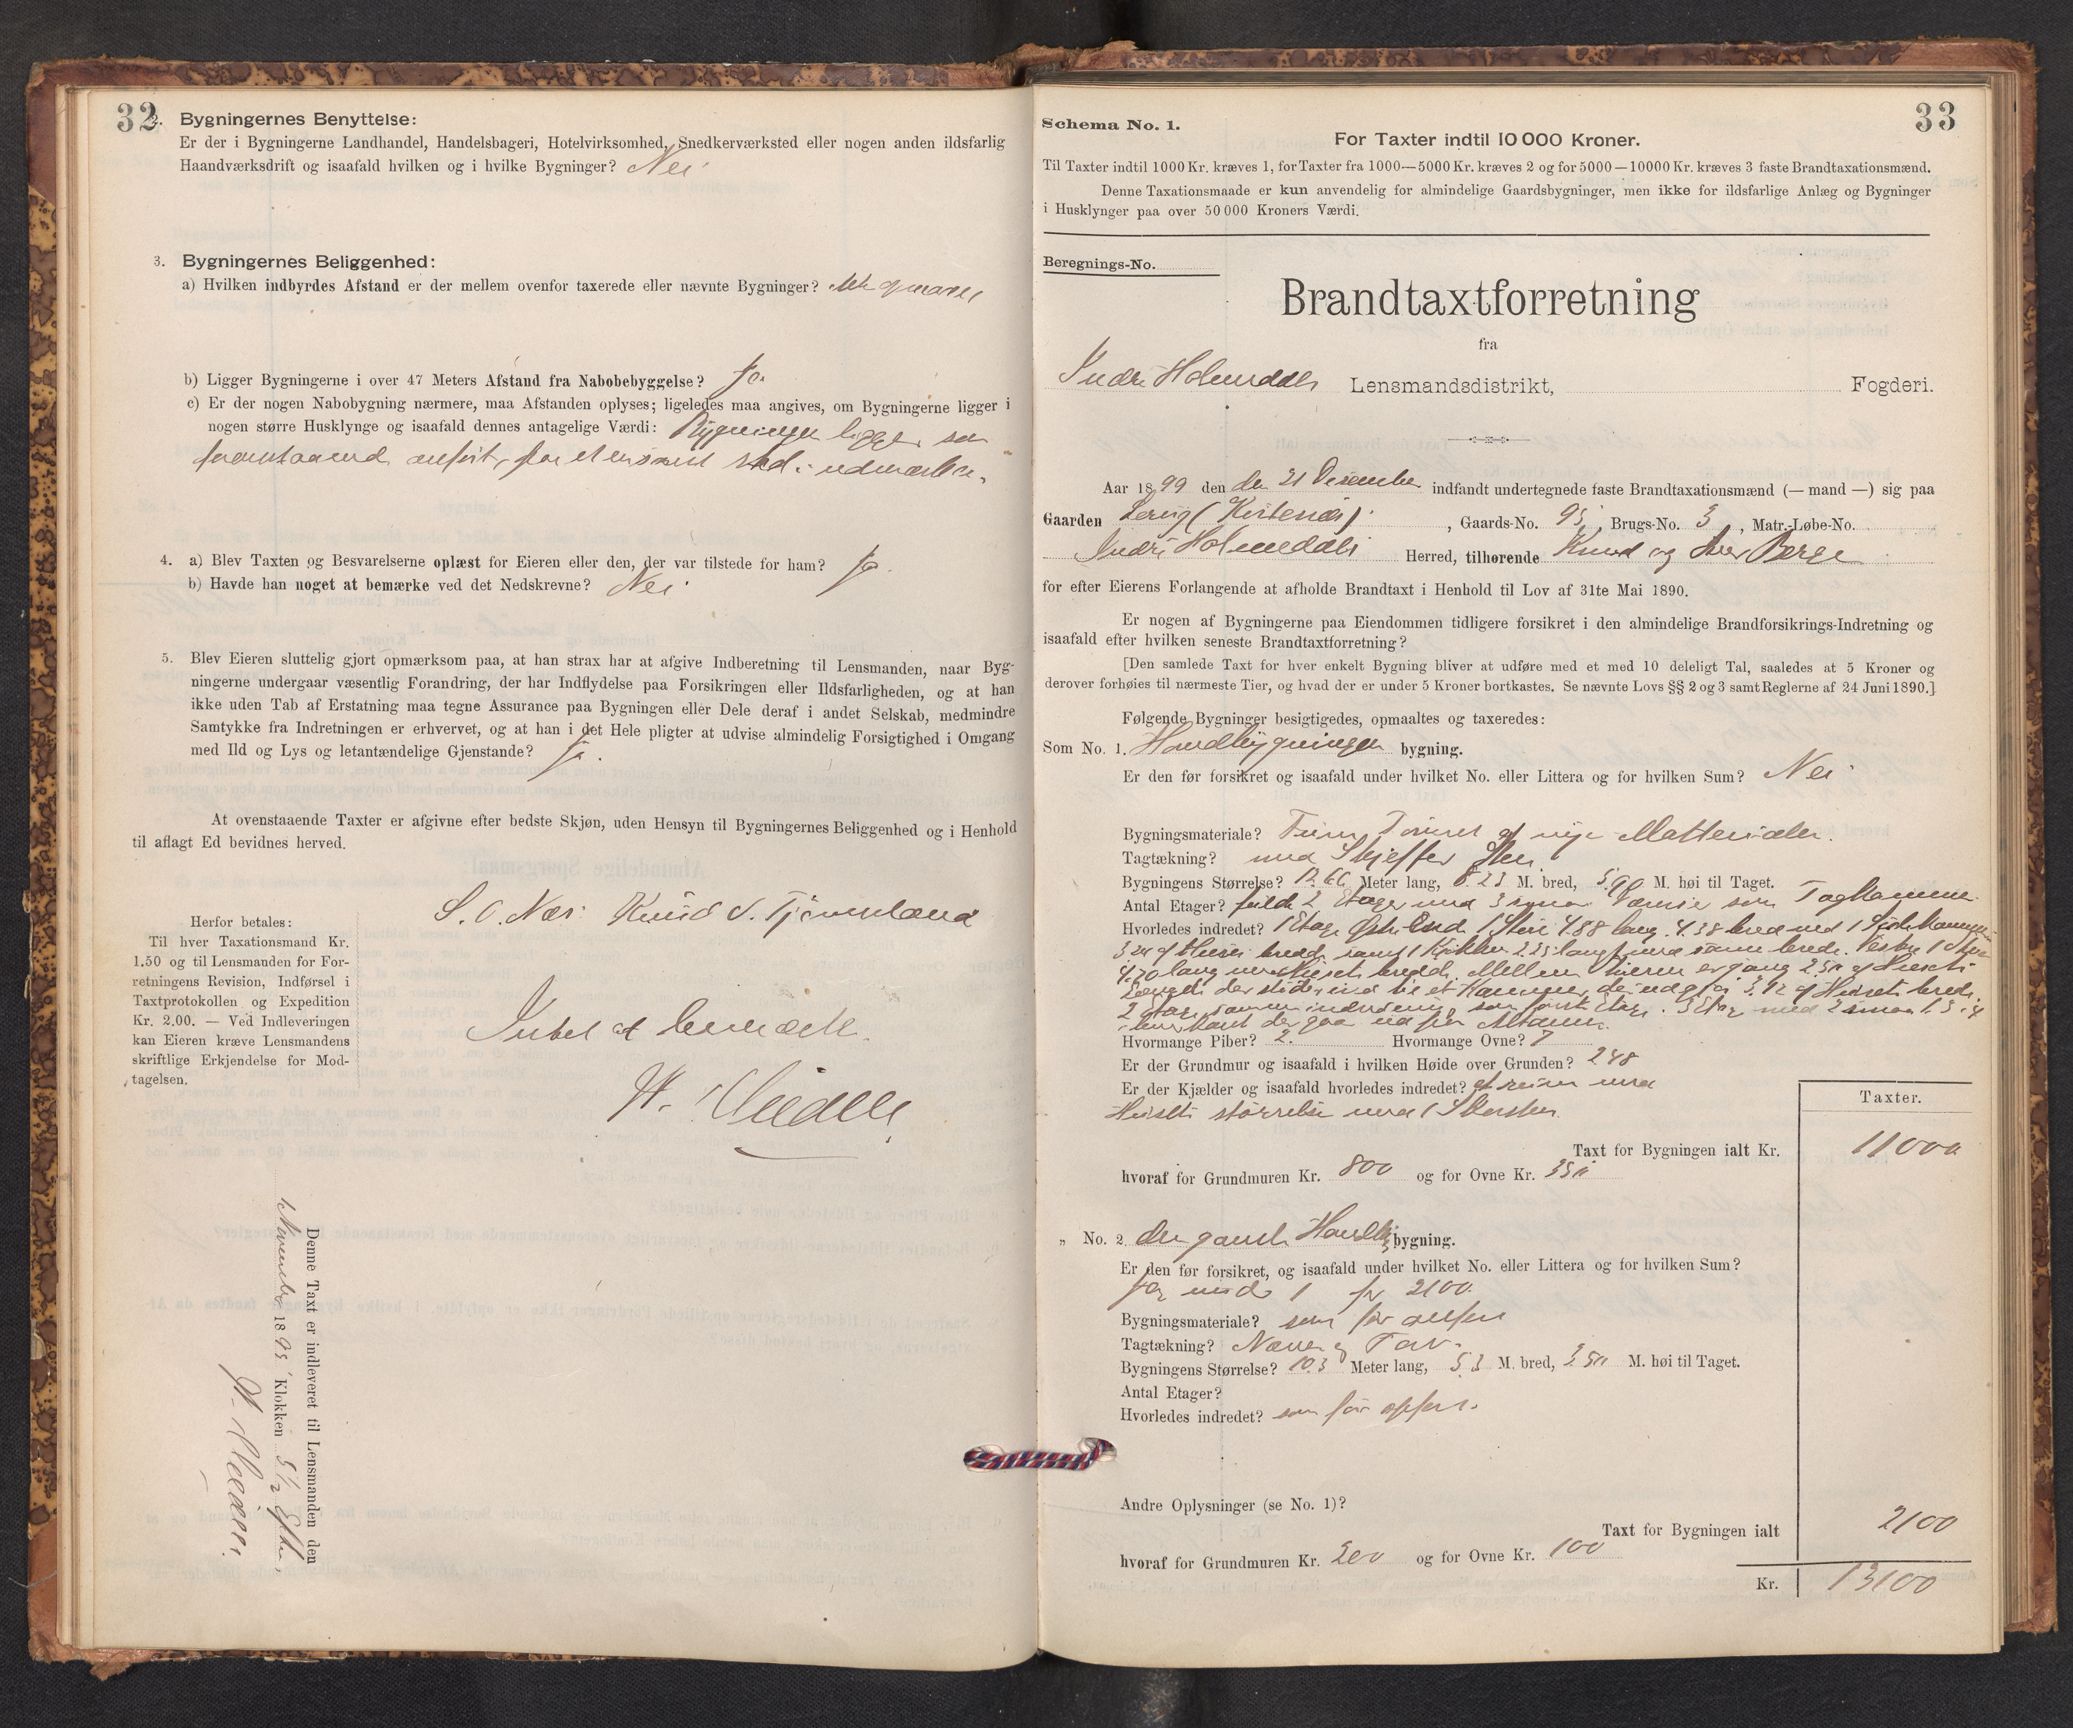 32
2. Bygningernes Benyttelse:
Er der i Bygningerne Landhandel, Handelsbageri, Hotelvirksomhed, Snedkerværksted eller nogen anden ildsfarlig
Haandværksdrift og isaafald hvilken og i hvilke Bygninger? Nei
3. Bygningernes Beliggenhed:
a) Hvilken indbyrdes Afstand er der mellem ovenfor taxerede eller nævnte Bygninger?
b) Ligger Bygningerne i over 47 Meters Afstand fra Nabobebyggelse? Ja
c) Er der nogen Nabobygning nærmere, maa Afstanden oplyses; ligeledes maa angives, om Bygningerne ligger i
nogen større Husklynge og isaafald dennes antagelige Værdi: Bygningen ligger som
4. a) Blev Taxten og Besvarelserne oplæst for Eieren eller den, der var tilstede for ham? Ja.
b) Havde han noget at bemærke ved det Nedskrevne? Nei
5. Blev Eieren sluttelig gjort opmærksom paa, at han strax har at afgive Indberetning til Lensmanden, naar Byg-
ningerne undergaar væsentlig Forandring, der har Indflydelse paa Forsikringen eller Ildsfarligheden, og at han
ikke uden Tab af Erstatning maa tegne Assurance paa Bygningen eller Dele deraf i andet Selskab, medmindre
Samtykke fra Indretningen er erhvervet, og at han i det Hele pligter at udvise almindelig Forsigtighed i Omgang
med Ild og Lys og letantændelige Gjenstande? Ja.
At ovenstaaende Taxter er afgivne efter bedste Skjøn, uden Hensyn til Bygningernes Beliggenhed og i Henhold
til aflagt Ed bevidnes herved.
S. O. Næs. Knud S. Tjemsland
Herfor betales:
Til hver Taxationsmand Kr.
1.50 og til Lensmanden for For-
retningens Revision, Indførsel i
Taxtprotokollen og Expedition
Kr. 2.00. — Ved Indleveringen
kan Eieren kræve Lensmandens
skriftlige Erkjendelse for Mod-
tagelsen.
Intet at bemærke.
Denne Taxt er indleveret til Lensmanden den
November 1895 Klokken 5 1/2 Efter
33
Schema No. 1.
For Taxter indtil 10 000 Kroner.
Til Taxter indtil 1000 Kr. kræves 1, for Taxter fra 1000—5000 Kr. kræves 2 og for 5000—10000 Kr. kræves 3 faste Brandtaxationsmænd.
Denne Taxationsmaade er kun anvendelig for almindelige Gaardsbygninger, men ikke for ildsfarlige Anlæg og Bygninger
i Husklynger paa over 50 000 Kroners Værdi.
Beregnings-No.
Brandtaxtforretning
fra
Indre Holmedals Lensmandsdistrikt, Fogderi.
Aar 1899 den den 21 Desember indfandt undertegnede faste Brandtaxationsmænd (— mand —) sig paa
Gaarden , Gaards-No. 95, Brugs-No. 3, Matr.-Løbe-No.
Indre Holmedals Herred, tilhørende Knud og Iver Berge
for efter Eierens Forlangende at afholde Brandtaxt i Henhold til Lov af 31te Mai 1890.
Er nogen af Bygningerne paa Eiendommen tidligere forsikret i den almindelige Brandforsikrings-Indretning og
isaafald efter hvilken seneste Brandtaxtforretning?
[Den samlede Taxt for hver enkelt Bygning bliver at udføre med et med 10 deleligt Tal, saaledes at 5 Kroner og
derover forhøies til nærmeste Tier, og hvad der er under 5 Kroner bortkastes. Se nævnte Lovs §§ 2 og 3 samt Reglerne af 24 Juni 1890.]
Følgende Bygninger besigtigedes, opmaaltes og taxeredes:
Som No. 1. Hovedbygningen bygning.
Er den før forsikret og isaafald under hvilket No. eller Littera og for hvilken Sum? Nei
Bygningsmateriale? Tømret af nye Matterialer.
Tagtækning? med Skiffer
Bygningens Størrelse? 12.66 Meter lang, 8.23 M. bred, 5.90 M. høi til Taget.
Antal Etager? fulde 2 Etager med 3 smaa Værelser som Tagkammer
Hvorledes indret? 1 Etage Østre End 1 Stue 4.88 lang. 4.38 bred med 1
Hvormange Piber? 2. Hvormange Ovne? 7
Er der Grundmur og isaafald i hvilken Høide over Grunden? 248
Er der Kjælder og isaafald hvorledes indredet?
Husets størrelse med 1 Skorsten
Taxter.
Taxt for Bygningen ialt Kr. 11000
hvoraf for Grundmuren Kr. 800 og for Ovne Kr. 350
„ No. 2 den gamle Hovedbygning.
Er den før forsikret, og isaafald under hvilket No. eller Littera og for hvilken Sum?
Ja 1 for 2100.
Bygningsmateriale? som før anført
Tagtækning? Næver og Torv.
Bygningens Størrelse? 10.3 Meter lang, 5.3 M. bred, 3.50 M. høi til Taget.
Antal Etager?
Hvorledes indredet? som før opført.
Andre Oplysninger (se No. 1)?
Taxt for Bygningen ialt 2100
hvoraf for Grundmuren Kr. 200 og for Ovne Kr. 100
Kr. 13100